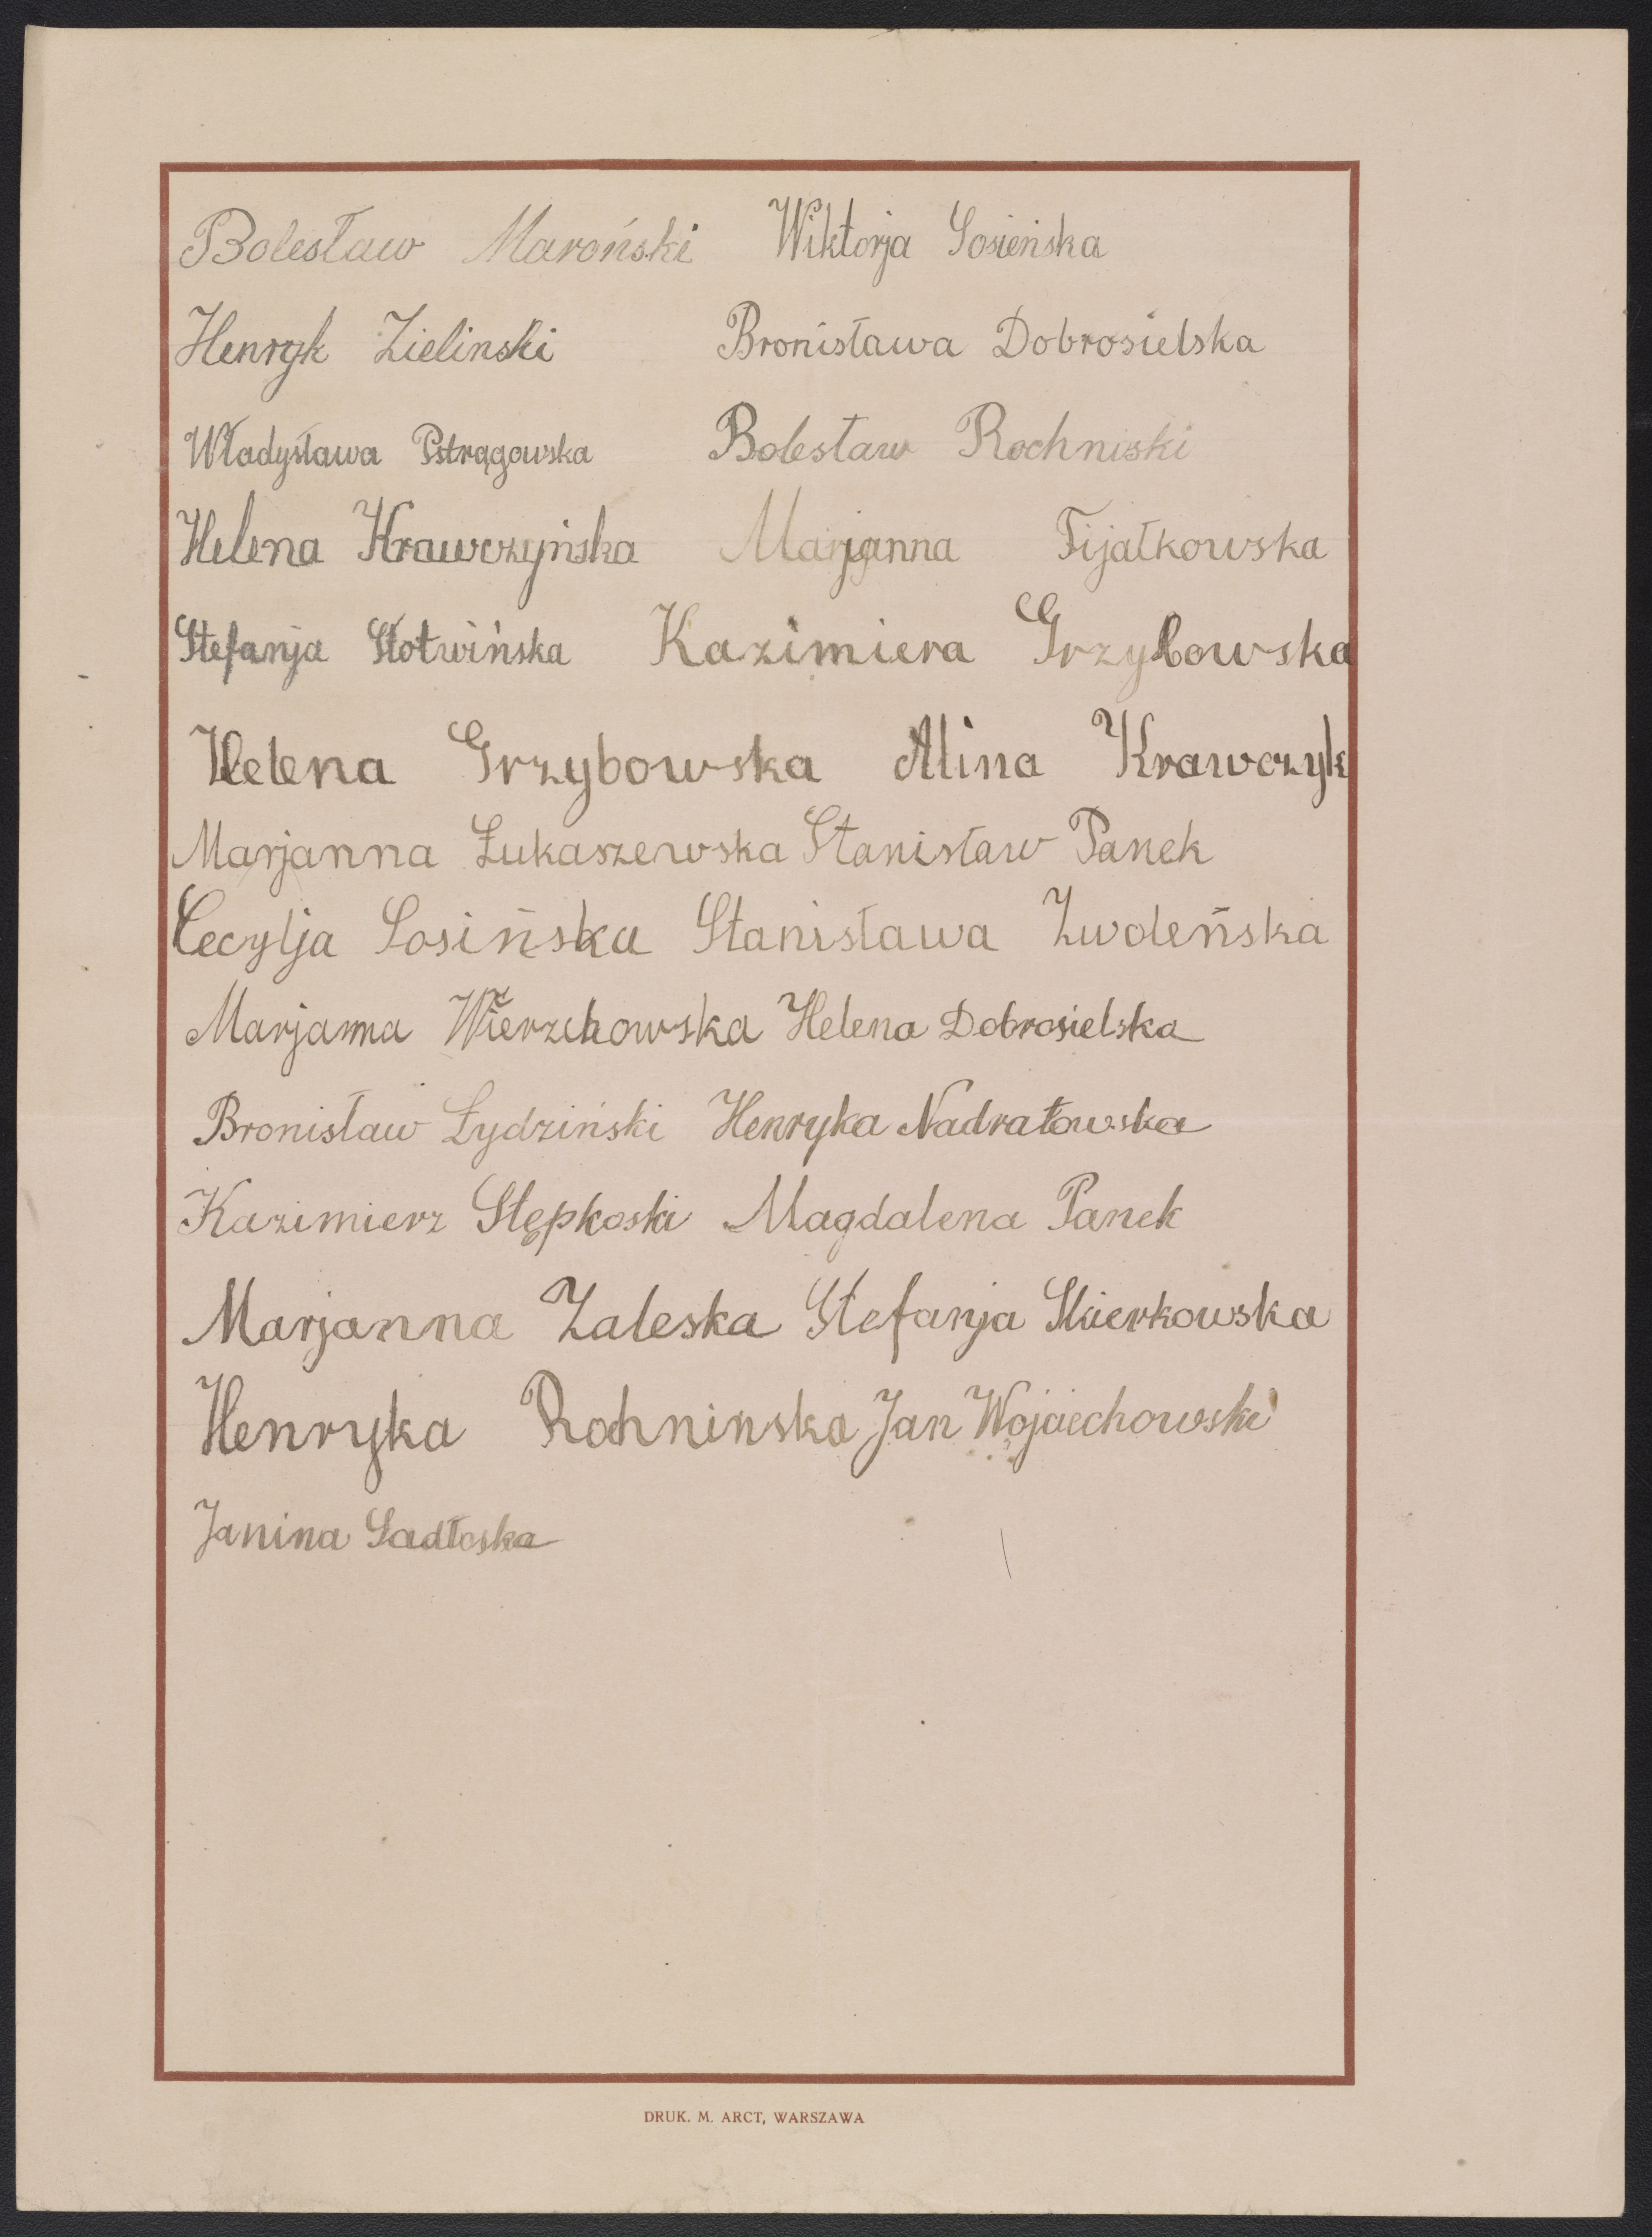 Bolesław Maroński Wiktorja Sosieńska
Henryk Zielinski Bronisława Dobrosielska
Władysława Pstrągowska Bolesław Rochniski
Helena Krawczyńska Marjanna Fijałkowska
Stefanja Słotwińska Kazimiera Grzybowska
Helena Grzybowska Alina Krawczyk
Marjanna Łukaszewska Stanisław Panek
Cecylja Sosińska Stanisława Zwoleńska
Marjanna Wierzchowska Helena Dobrosielska
Bronisław Łydziński Henryka Nadratowska
Kazimierz Stępkoski Magdalena Panek
Marjanna Zaleska Stefanja Skierkowska
Henryka Rochninska Jan Wojciechowski
Janina Sadłoska
DRUK. M. ARCT, WARSZAWA